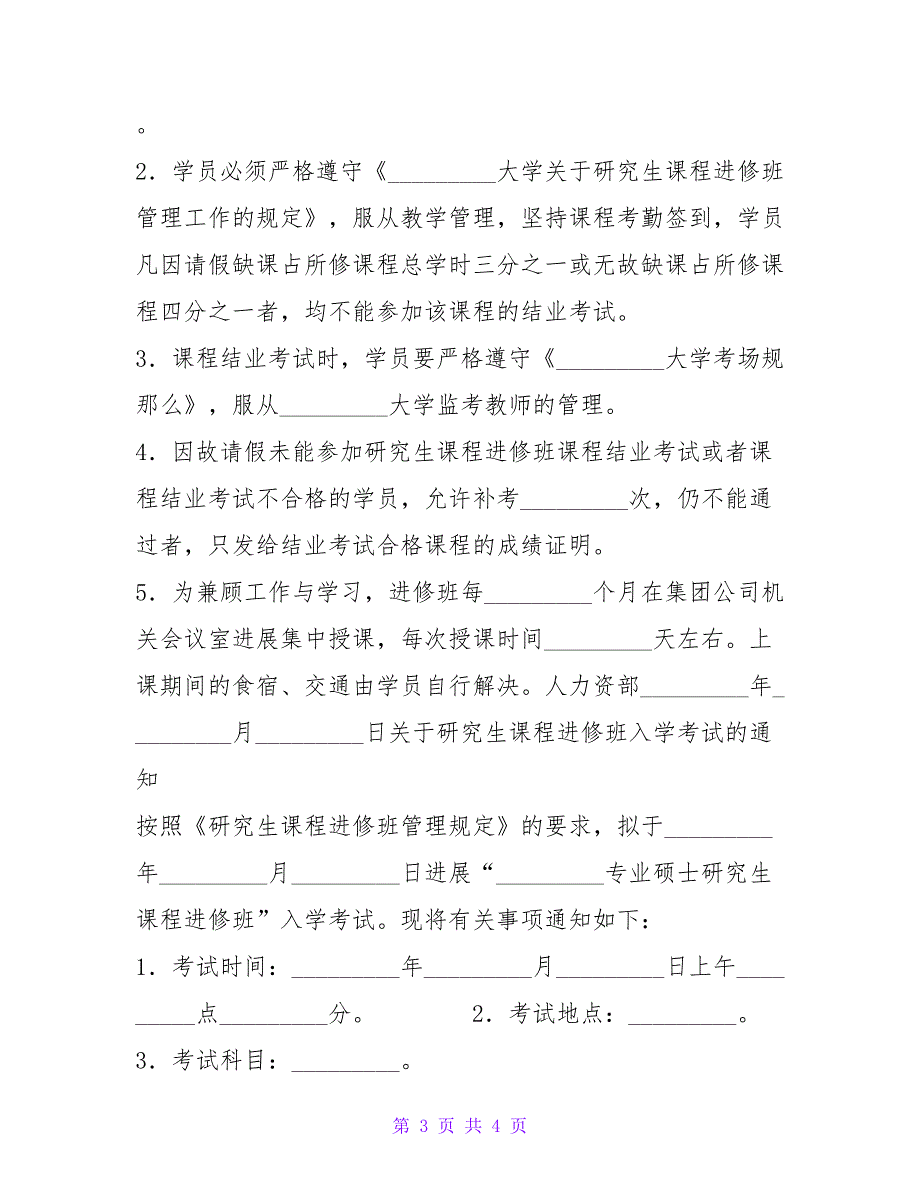 。
2．学员必须严格遵守《_________大学关于研究生课程进修班
管理工作的规定》，服从教学管理，坚持课程考勤签到，学员
凡因请假缺课占所修课程总学时三分之一或无故缺课占所修课
程四分之一者，均不能参加该课程的结业考试。
3．课程结业考试时，学员要严格遵守《_________大学考场规
那么》，服从_________大学监考教师的管理。
4．因故请假未能参加研究生课程进修班课程结业考试或者课
程结业考试不合格的学员，允许补考_________次，仍不能通
过者，只发给结业考试合格课程的成绩证明。
5．为兼顾工作与学习，进修班每_________个月在集团公司机
关会议室进展集中授课，每次授课时间_________天左右。上
课期间的食宿、交通由学员自行解决。人力资部_________年_
________月_________日关于研究生课程进修班入学考试的通
知
按照《研究生课程进修班管理规定》的要求，拟于_________
年_________月_________日进展“_________专业硕士研究生
课程进修班”入学考试。现将有关事项通知如下：
1．考试时间：_________年_________月_________日上午____
_____点_________分。 2．考试地点：_________。
3．考试科目：_________。
第 3 页 共 4 页